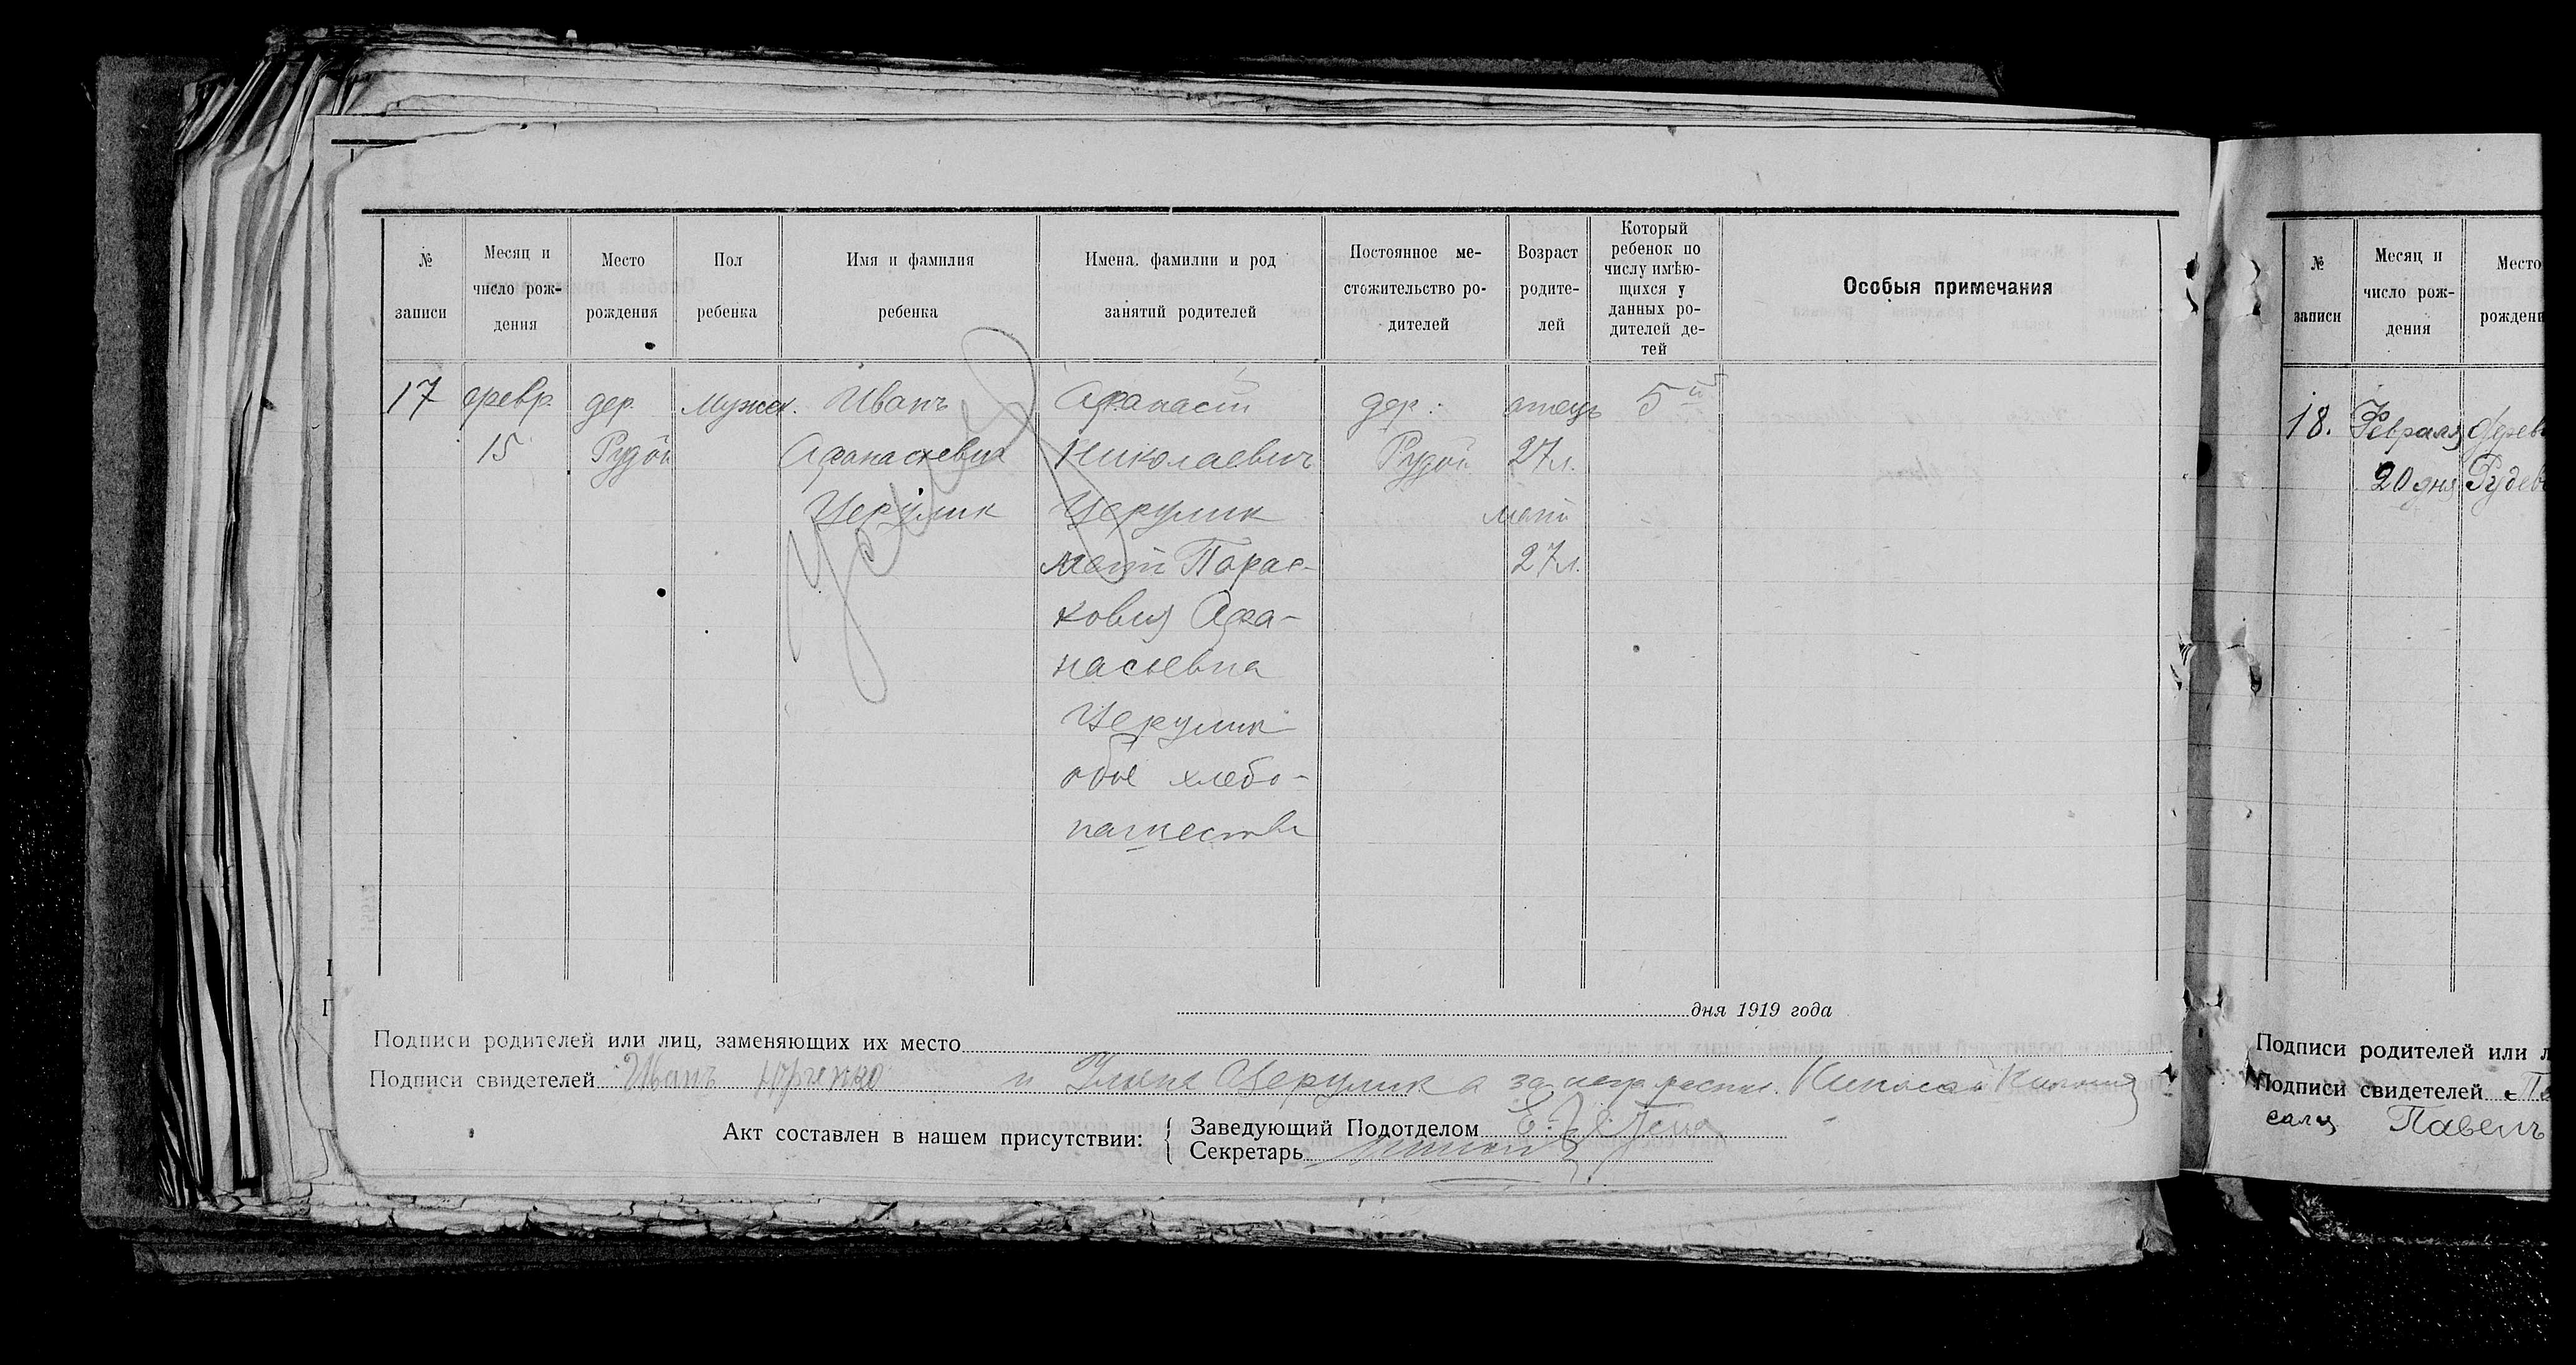 № записи
Месяц и число рож-дения
Место рождения
Пол ребенка
Имя и фамилия ребенка
Имена, фамилии и род занятий родителей
Постоянное ме-стожительство ро-дителей
Возраст родите-лей
Который ребенок по числу имѣю-щихся у данных ро-дителей де-тей
Особыя примечания
17
февр. 15
дер. Рудой
Мужск.
Иванъ
Афанасиевич
Церулик
Афанасий
Николаевич
Церулик
мать Парас-
ковия Афа-
насьевна
Церулик
обое хлебо-
пашества
дер. Рудой
отецъ
27 л.
мать
27 л.
5й
Умер
дня 1919 года
Подписи родителей или лиц, заменяющих их место
Подписи свидетелей Иванъ Юрченко и Ульяна Церулик а за негр распис. Николай
Акт составлен в нашем присутствии:
Заведующий Подотделом
Секретарь
№ записи
Месяц и число рож-дения
Место рожден
18.
Февраля
20 дня
Подписи родителей или л
Подписи свидетелей
Павелъ